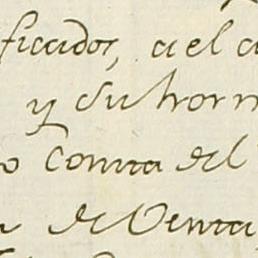 ficados, a el
y su hor
Consta del
de Venta